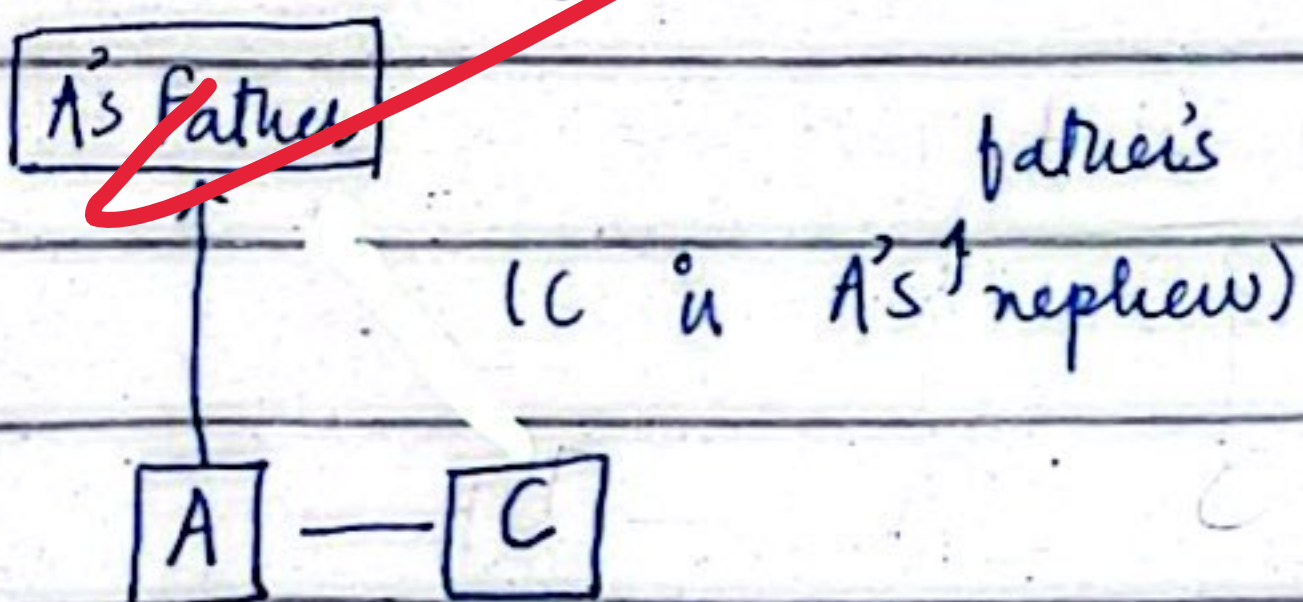 A's father
father's
(C is A's nephew)
A
C